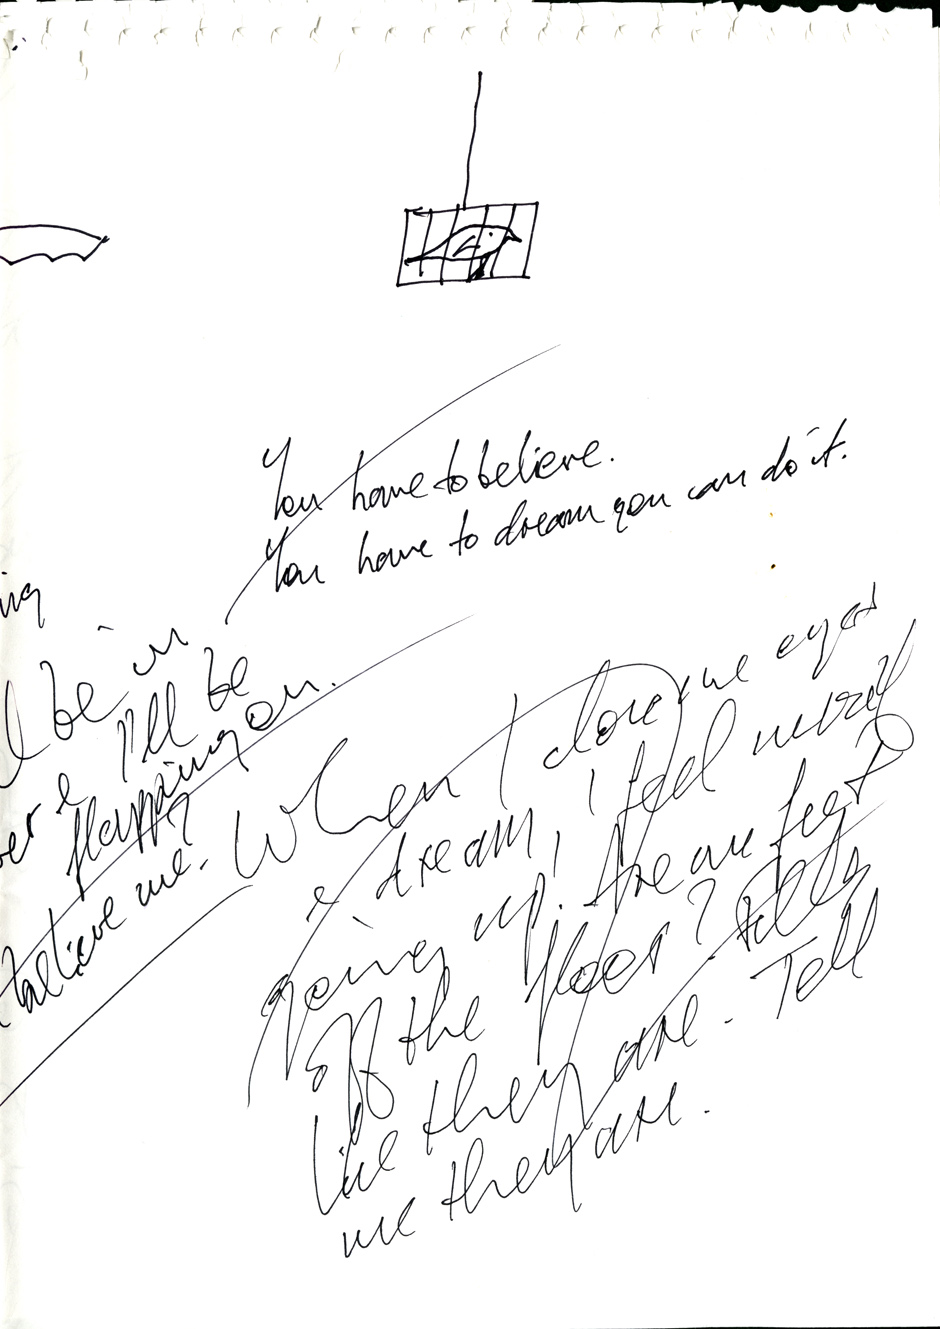 You have to believe.
You have to dream you can do it.
ing
I be in
ver & I'll be
flapping on.
believe me.
When I close me eyes
& dream, I feel meself
going up. Are me feet
off the floor? Tell
me they are. Tell
me they are.